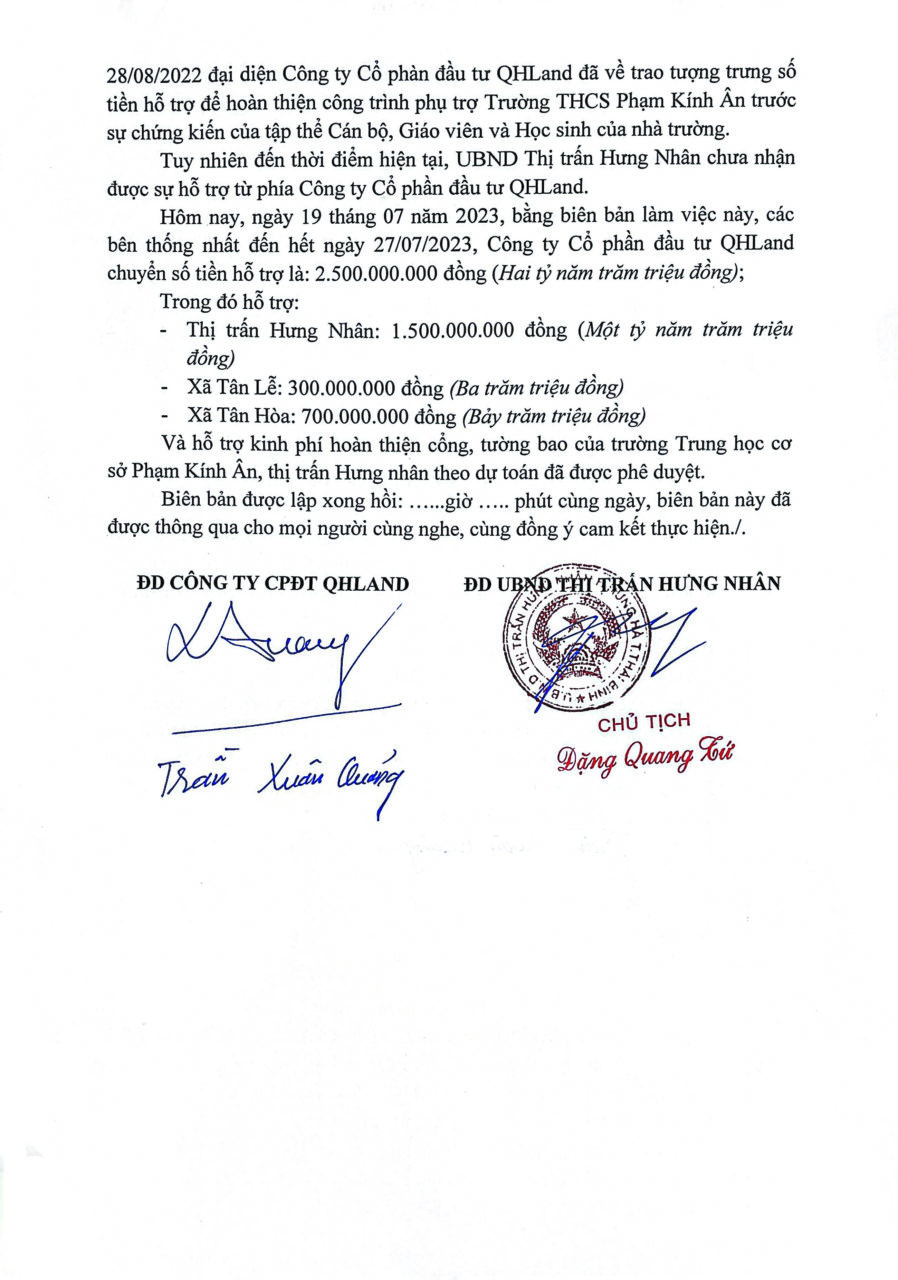 28/08/2022 đại diện Công ty Cổ phàn đầu tư QHLand đã về trao tượng trưng số
tiền hỗ trợ để hoàn thiện công trình phụ trợ Trường THCS Phạm Kính Ân trước
sự chứng kiến của tập thể Cán bộ, Giáo viên và Học sinh của nhà trường.
Tuy nhiên đến thời điểm hiện tại, UBND Thị trấn Hưng Nhân chưa nhận
được sự hỗ trợ từ phía Công ty Cổ phần đầu tư QHLand.
Hôm nay, ngày 19 tháng 07 năm 2023, bằng biên bản làm việc này, các
bên thống nhất đến hết ngày 27/07/2023, Công ty Cổ phần đầu tư QHLand
chuyển số tiền hỗ trợ là: 2.500.000.000 đồng (Hai tỷ năm trăm triệu đồng);
Trong đó hỗ trợ:
- Thị trấn Hưng Nhân: 1.500.000.000 đồng (Một tỷ năm trăm triệu
đồng)
- Xã Tân Lễ: 300.000.000 đồng (Ba trăm triệu đồng)
- Xã Tân Hòa: 700.000.000 đồng (Bảy trăm triệu đồng)
Và hỗ trợ kinh phí hoàn thiện cổng, tường bao của trường Trung học cơ
sở Phạm Kính Ân, thị trấn Hưng nhân theo dự toán đã được phê duyệt.
Biên bản được lập xong hồi: …...giờ ….. phút cùng ngày, biên bản này đã
được thông qua cho mọi người cùng nghe, cùng đồng ý cam kết thực hiện./.
ĐD CÔNG TY CPĐT QHLAND
Trần Xuân Quảng
ĐD UBND THỊ TRẤN HƯNG NHÂN
U.B.N.D THỊ TRẤN HƯNG T.THÁI BÌNH
CHỦ TỊCH
Đặng Quang Tứ